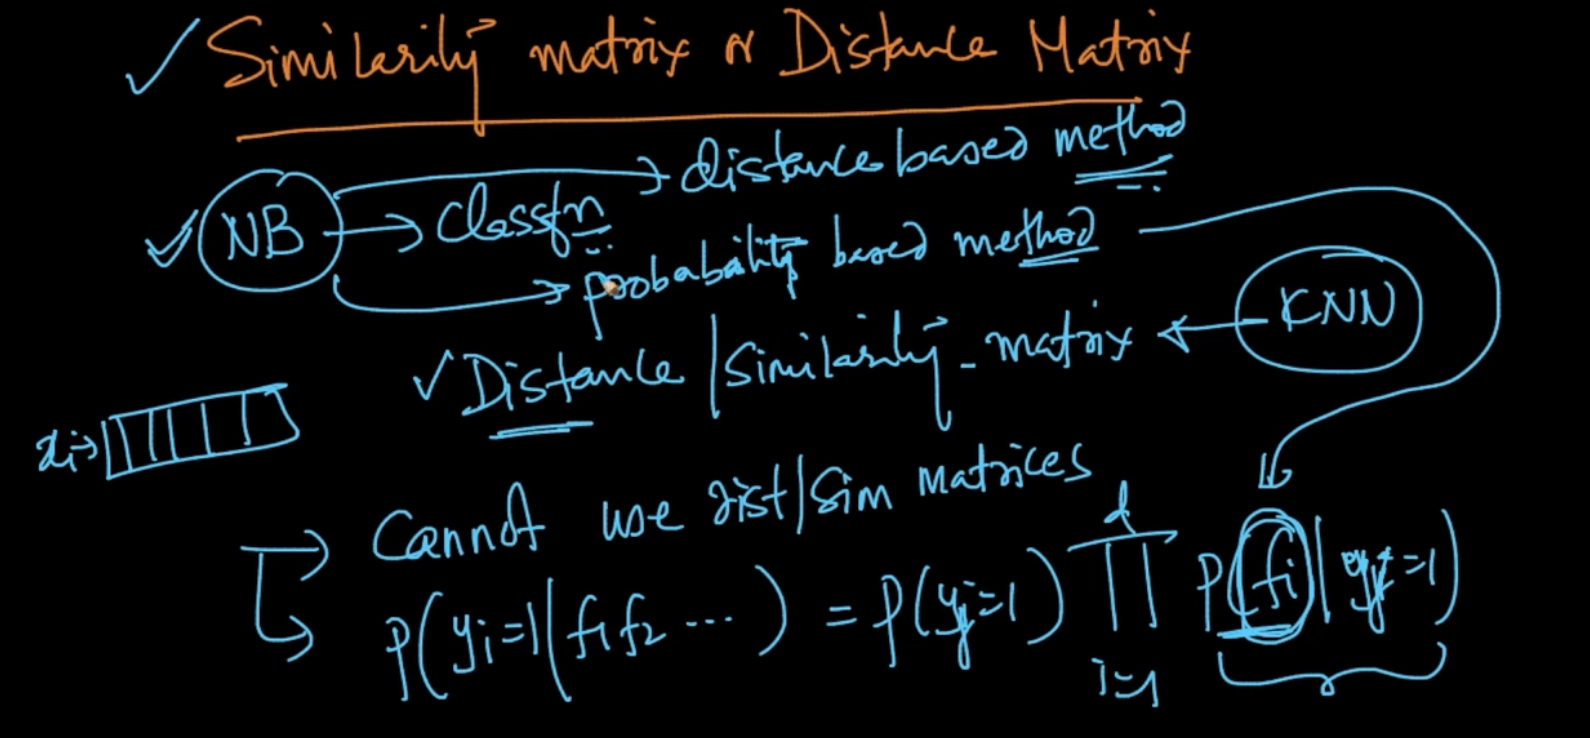 Similarity matrix or Distance Matrix
distance based method
NB → Classfn
probability based method
Distance | Similarity - matrix ← KNN
xi →
Cannot use dist/sim matrices
P(yi=1|f1 f2 ...) = P(yi=1) ∏ᵈᵢ₌₁ P(fi|yi=1)